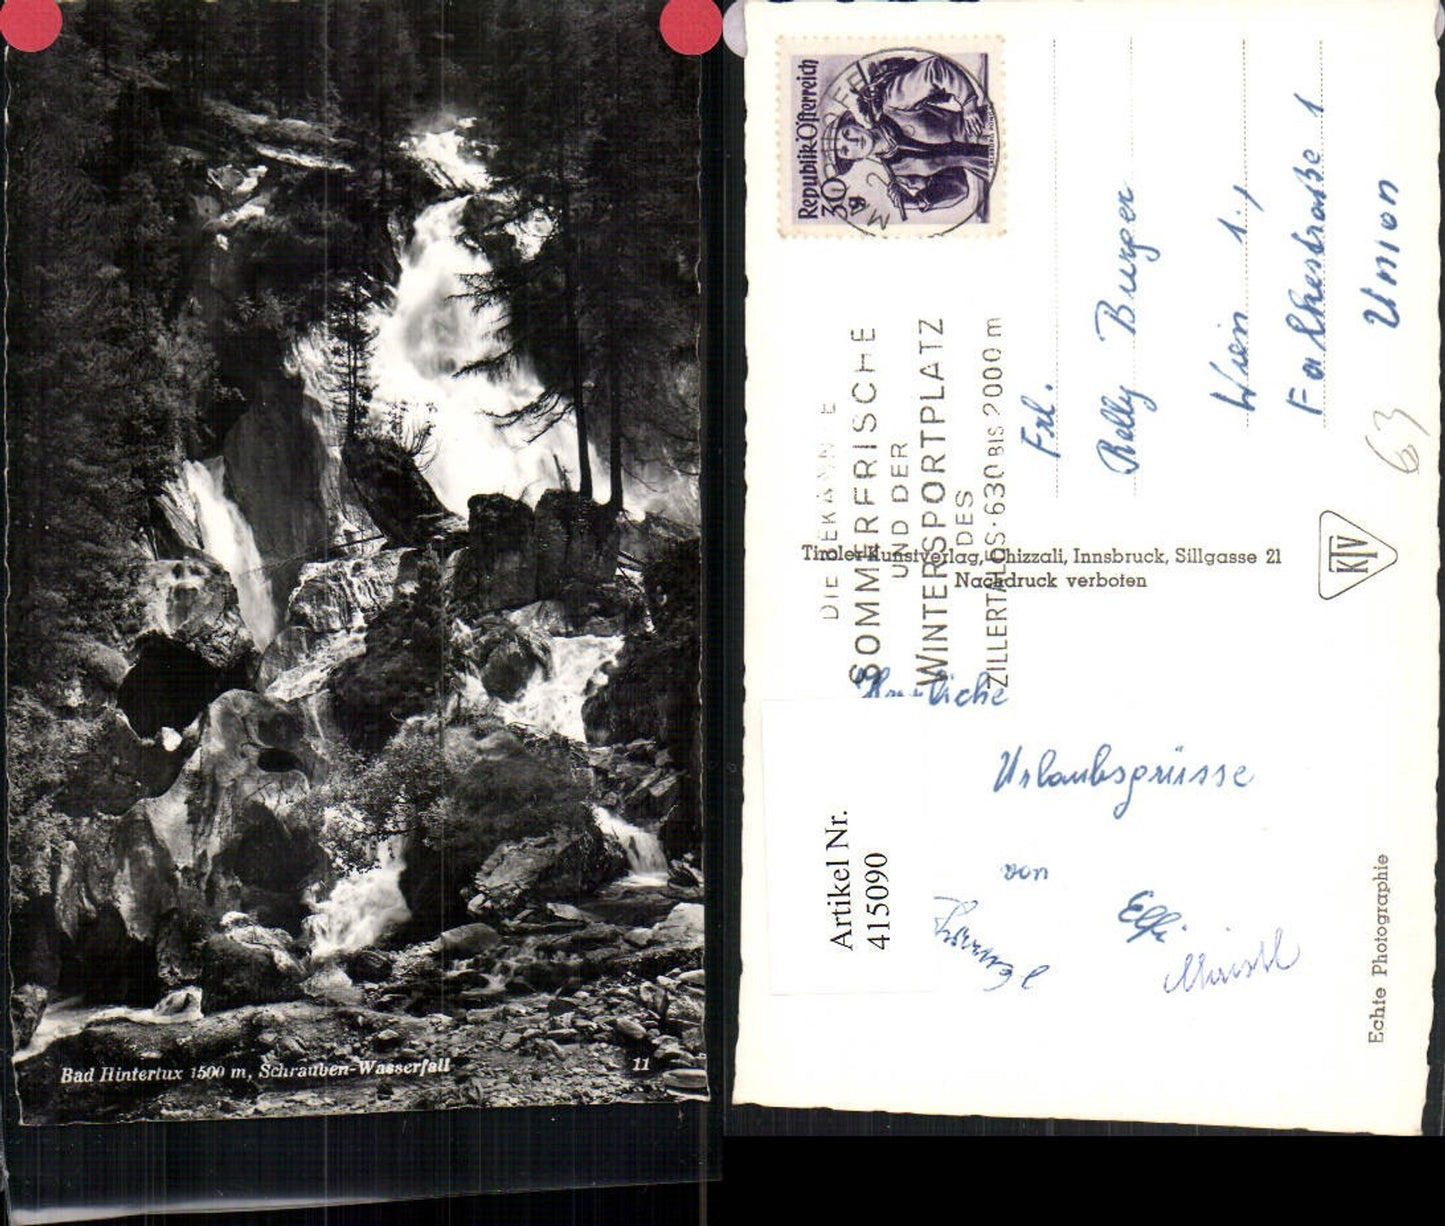 Bad Hintertux 1500 m, Schrauben-Wasserfall
11
Republik Österreich
30
DIE BEKANNTE
SOMMERFRISCHE
UND DER
WINTERSPORTPLATZ
DES
ZILLERTALES·630 BIS 2000 m
Frl.
Burger
Wien 1.)
Falkestraße 1
Union
63
Tiroler Kunstverlag, Chizzali, Innsbruck, Sillgasse 21
Nachdruck verboten
KTV
Herzliche
Urlaubsgrüsse
von
Elfi
Artikel Nr.
415090
Echte Photographie